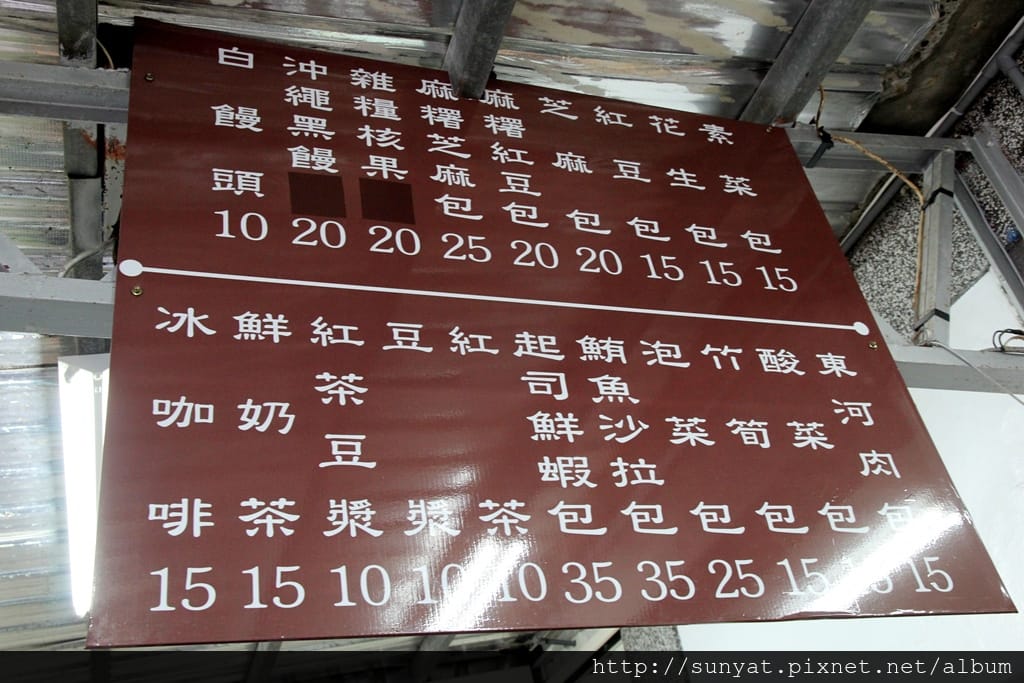 素菜包 15
花生包 15
紅豆包 15
芝麻包 20
麻糬紅豆包 20
麻糬芝麻包 25
雜糧核果 20
沖繩黑饅 20
白饅頭 10
東河肉包 15
酸菜包 15
竹筍包 15
泡菜包 25
鮪魚沙拉包 35
起司鮮蝦包 35
紅茶 10
豆漿 10
紅茶豆漿 10
鮮奶茶 15
冰咖啡 15
http://sunyat.pixnet.net/album